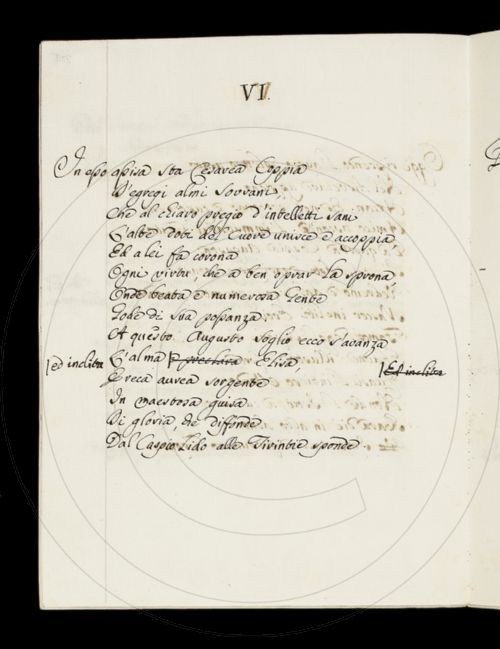 VI.
In esso assisa sta Cesarea Coppia
D'egregi almi Sovrani,
Che al chiaro pregio d'intelletti sani
L'alte doti del Cuore unisce e accoppia,
Ed a lei fa corona
Ogni virtù, che a ben oprar la sprona,
Onde beata e numerosa Gente
Gode di sua possanza.
A questo Augusto Soglio ecco s'avanza
L'alma preclara Elisa,
ed inclita
Ed inclita
E reca aurea sorgente
In maestosa guisa
Di gloria, che diffonde
Dal Caspio Lido alle Tirintie sponde